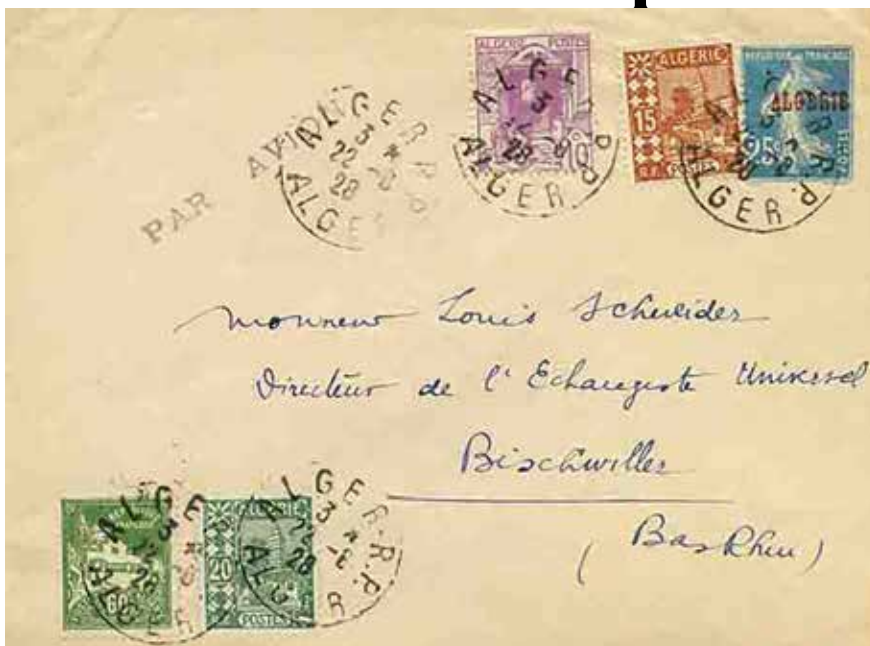 PAR AVION
ALGER R.P.
3
22 -8
28
ALGER
ALGERIE POSTES
ALGER R.P.
3
22 -8
28
ALGER
ALGÉRIE
15
R.F. POSTES
REPUBLIQUE FRANÇAISE
ALGÉRIE
25c
POSTES
ALGER R.P.
28
ALGER
Monsieur Louis Schneider
Directeur de l'Echangiste Universel
Bischwiller
(Bas Rhin)
60
ALGER R.P.
3
28
ALGER
ALGÉRIE
20
POSTES
ALGER-R.P.
3
22 -8
28
ALGER